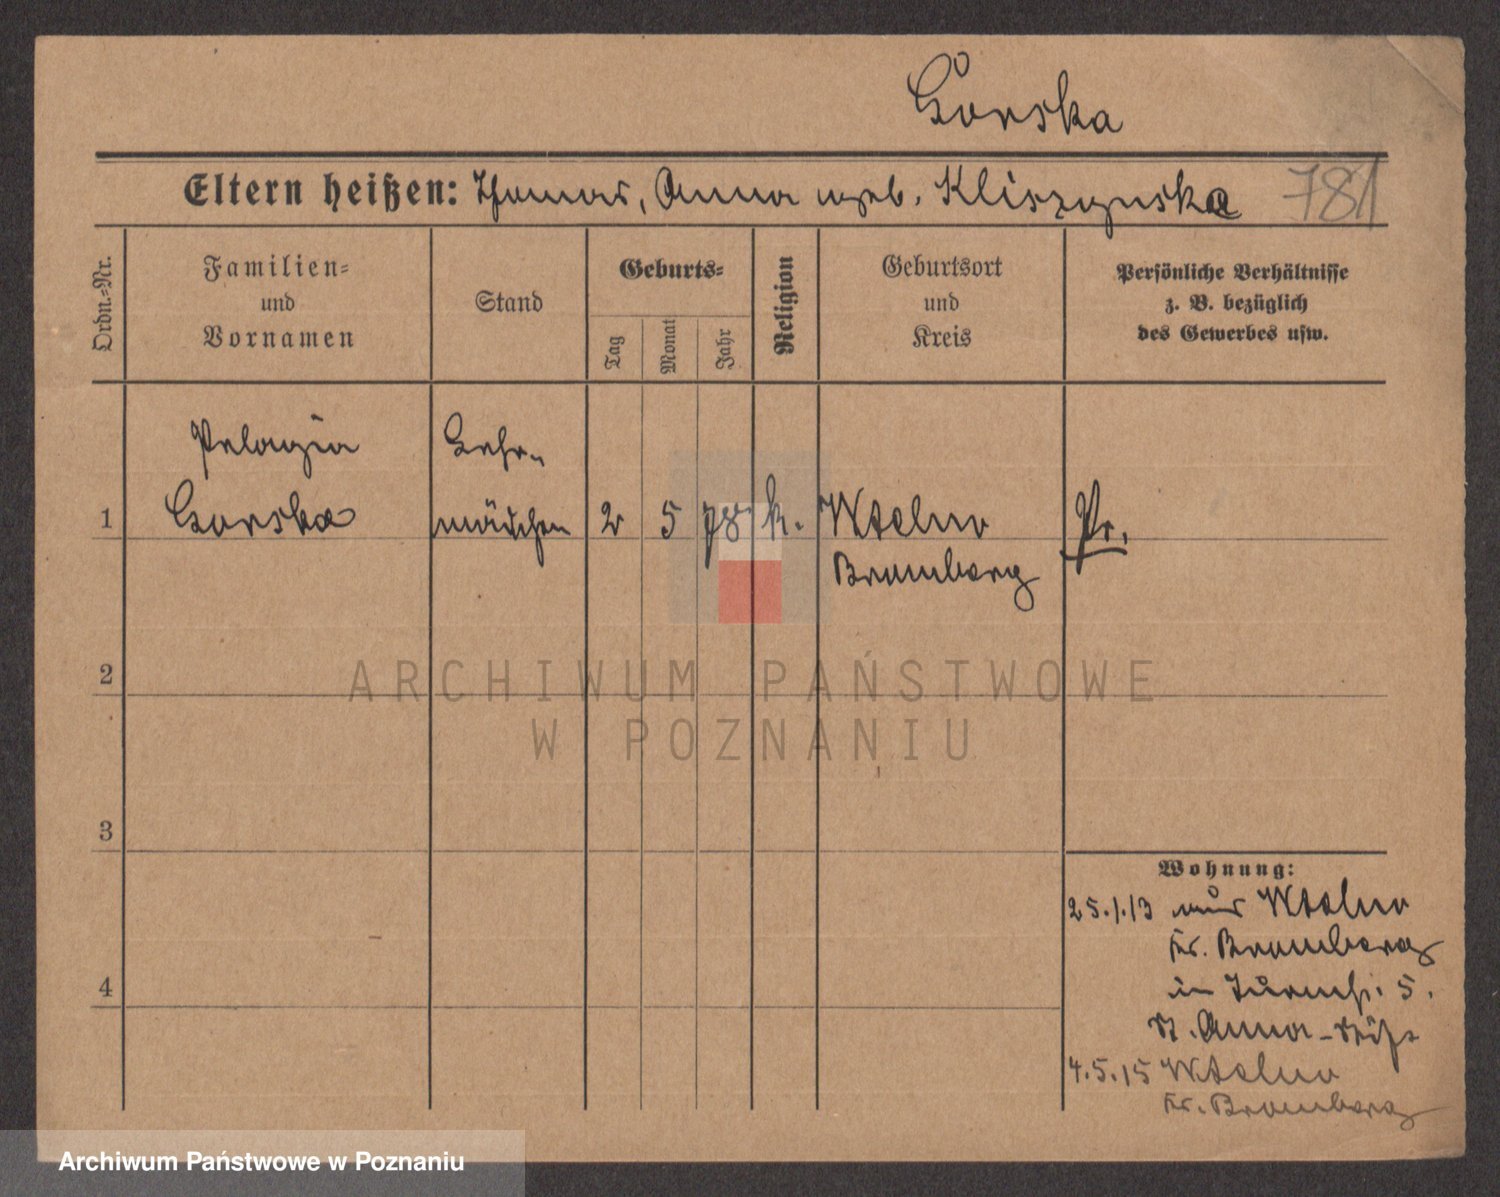 Górska
Eltern heißen: Thomas, Anna geb. Kliszynska 781
Ordn.-Nr.
Familien-
und
Vornamen
Stand
Geburts-
Tag
Monat
Jahr
Religion
Geburtsort
und
Kreis
Persönliche Verhältnisse
z. B. bezüglich
des Gewerbes usw.
Pelagia Lehr-
1 Gorska mädchen 2 5 98 k. Wtelno Pr.
Bromberg
2
ARCHIWUM PAŃSTWOWE
W POZNANIU
3
Wohnung:
25.1.13 aus Wtelno
Kr. Bromberg
in 5.
St. Anna-
4
4.5.15 Wtelno
Kr. Bromberg
Archiwum Państwowe w Poznaniu